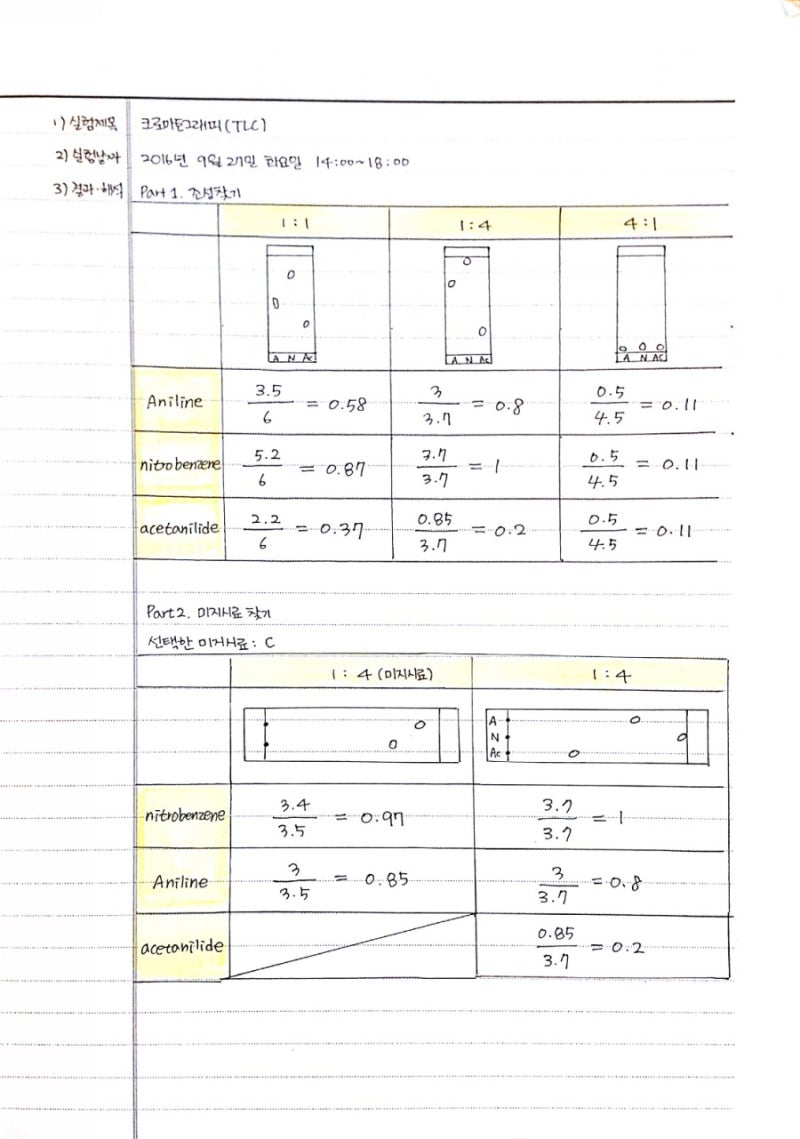 1) 실험제목 크로마토그래피(TLC)
2) 실험날짜 2016년 9월 27일 화요일 14:00~18:00
3) 결과·해석 Part 1. 조성찾기
1:1 1:4 4:1
A N Ac A N Ac A N Ac
Aniline 3.5/6 = 0.58 3/3.7 = 0.8 0.5/4.5 = 0.11
nitrobenzene 5.2/6 = 0.87 3.7/3.7 = 1 0.5/4.5 = 0.11
acetanilide 2.2/6 = 0.37 0.85/3.7 = 0.2 0.5/4.5 = 0.11
Part 2. 미지시료 찾기
선택한 미지시료: C
1:4 (미지시료) 1:4
A
N
Ac
nitrobenzene 3.4/3.5 = 0.97 3.7/3.7 = 1
Aniline 3/3.5 = 0.85 3/3.7 = 0.8
acetanilide 0.85/3.7 = 0.2